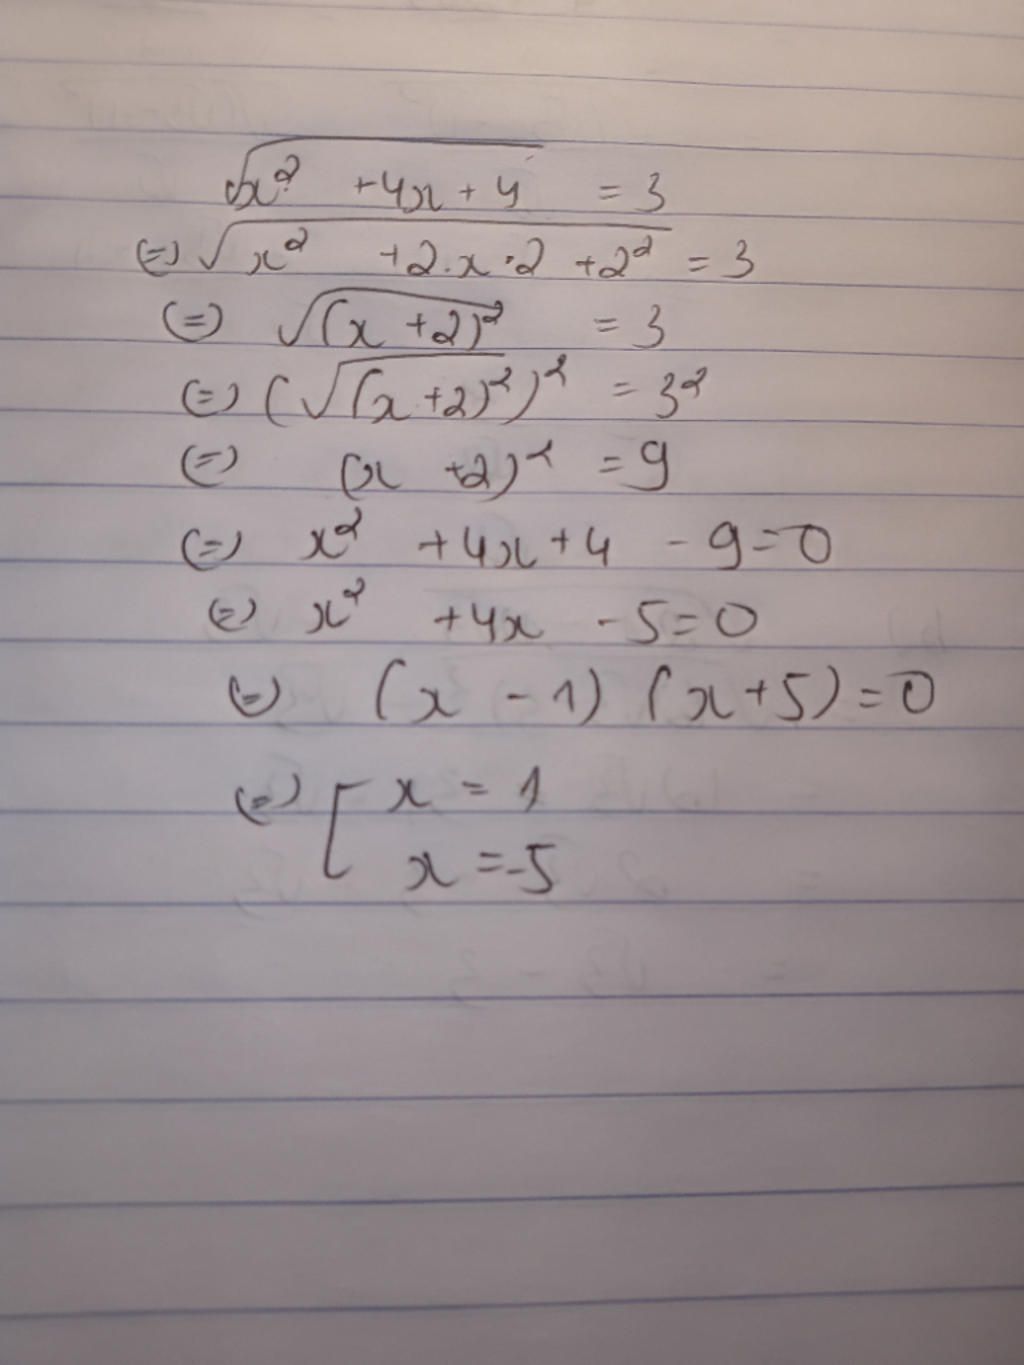 √(x² + 4x + 4) = 3
(=) √(x² + 2.x.2 + 2²) = 3
(=) √((x + 2)²) = 3
(=) (√((x + 2)²))² = 3²
(=) (x + 2)² = 9
(=) x² + 4x + 4 - 9 = 0
(=) x² + 4x - 5 = 0
(=) (x - 1) (x + 5) = 0
(=) [ x = 1
x = -5